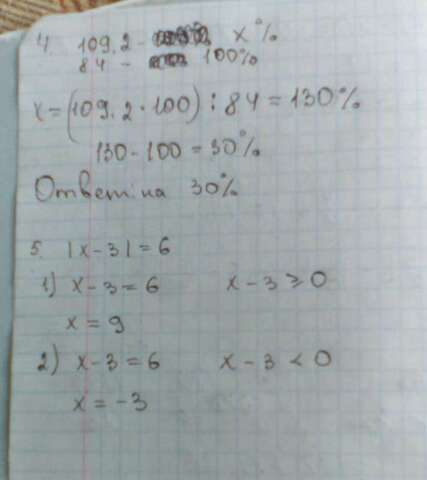 4. 109.2 - x%
84 - 100%
x=(109.2·100):84=130%
130-100=30%
Ответ: на 30%
5. |x-3|=6
1) x-3=6 x-3≥0
x=9
2) x-3=6 x-3<0
x=-3